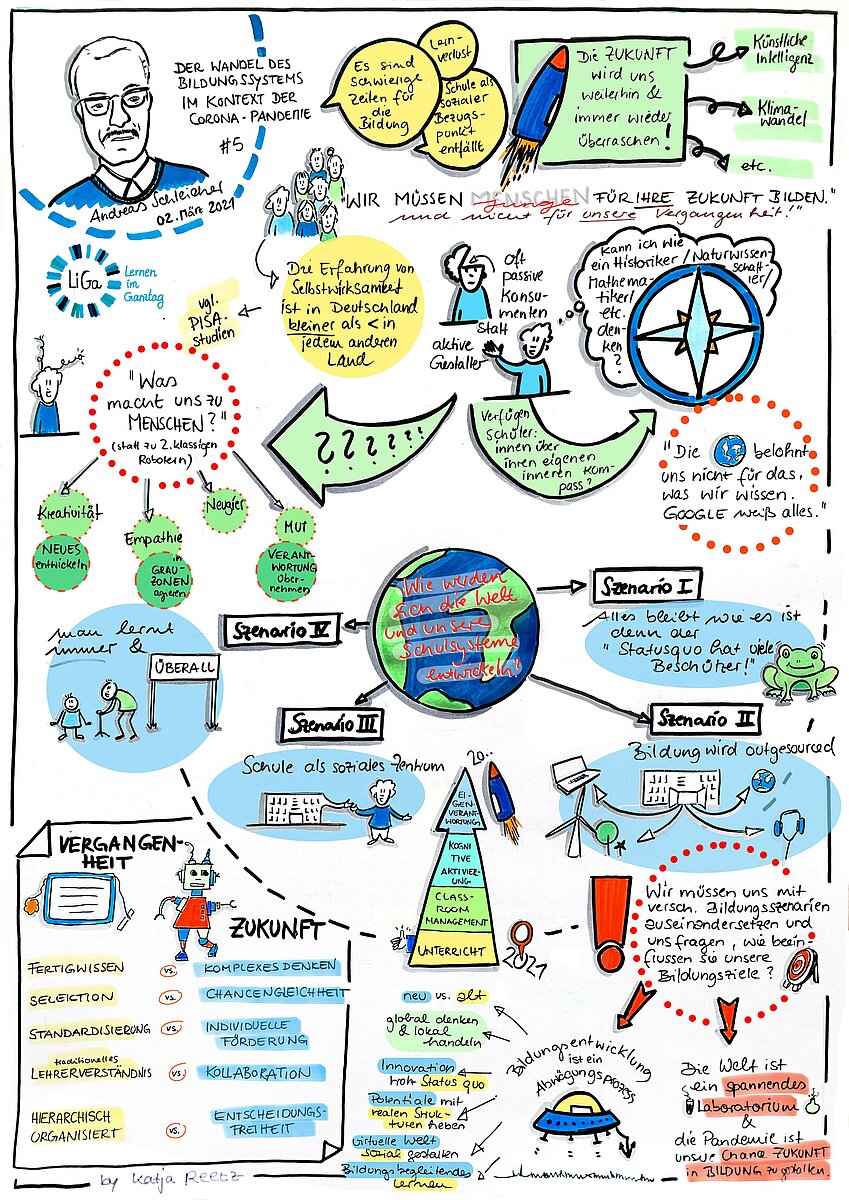 DER WANDEL DES
BILDUNGSSYSTEMS
IM KONTEXT DER
CORONA-PANDEMIE
#5
Andreas Schleicher
02. März 2021
Es sind
schwierige
Zeiten für
die
Bildung
Lern-
verlust
Schule als
sozialer
Bezugs-
punkt
entfällt
Die ZUKUNFT
wird uns
weiterhin &
immer wieder
überraschen!
Künstliche
Intelligenz
Klima-
wandel
etc.
"WIR MÜSSEN MENSCHEN FÜR IHRE ZUKUNFT BILDEN."
und nicht für unsere Vergangenheit!"
LiGa
Lernen
im
Ganztag
vgl.
PISA-
studien
Die Erfahrung von
Selbstwirksamkeit
ist in Deutschland
kleiner als < in
jedem anderen
Land
oft
passive
Konsu-
menten
statt
aktive
Gestalter
Kann ich wie
ein Historiker/Naturwissen-
schaft-
ler/
Mathema-
tiker/
etc.
den-
ken
?
"Was
macht uns zu
MENSCHEN?"
(statt zu 2.klassigen
Robotern)
? ? ? ? ? ?
Verfügen
Schüler:
innen über
ihren eigenen
inneren Kom-
pass?
"Die belohnt
uns nicht für das,
was wir wissen.
GOOGLE weiß alles."
Kreativität
NEUES
entwickeln
Empathie
in
GRAU-
ZONEN
agieren
Neugier
MUT
VERANT-
WORTUNG
über-
nehmen
Wie werden
sich die Welt
und unsere
Schulsysteme
entwickeln?
Szenario I
Alles bleibt wie es ist
denn der
"Statusquo hat viele
Beschützer!"
Szenario IV
man lernt
immer &
ÜBERALL
Szenario III
Schule als soziales Zentrum
Szenario II
Bildung wird outgesourced
20..
EI-
GENVERANT-
WORTUNG
KOGNI
TIVE
AKTIVIER-
UNG
CLASS-
ROOM
MANAGEMENT
UNTERRICHT
2021
Wir müssen uns mit
versch. Bildungsszenarien
auseinandersetzen und
uns fragen, wie beein-
flussen sie unsere
Bildungsziele?
VERGANGEN-
HEIT
ZUKUNFT
FERTIGWISSEN vs. KOMPLEXES DENKEN
SELEKTION vs. CHANCENGLEICHHEIT
STANDARDISIERUNG vs. INDIVIDUELLE
FÖRDERUNG
traditionelles
LEHRERVERSTÄNDNIS vs. KOLLABORATION
HIERARCHISCH
ORGANISIERT vs. ENTSCHEIDUNGS-
FREIHEIT
neu vs. alt
global denken
& lokal
handeln
Innovation
trotz Status quo
Potentiale mit
realen Struk-
turen heben
Virtuelle Welt
sozial gestalten
Bildungsbegleitendes
Lernen
Bildungsentwicklung
ist ein
Abwägungsprozess
Die Welt ist
ein spannendes
Laboratorium
&
die Pandemie ist
unsere Chance ZUKUNFT
in BILDUNG zu gestalten.
by Katja Reetz